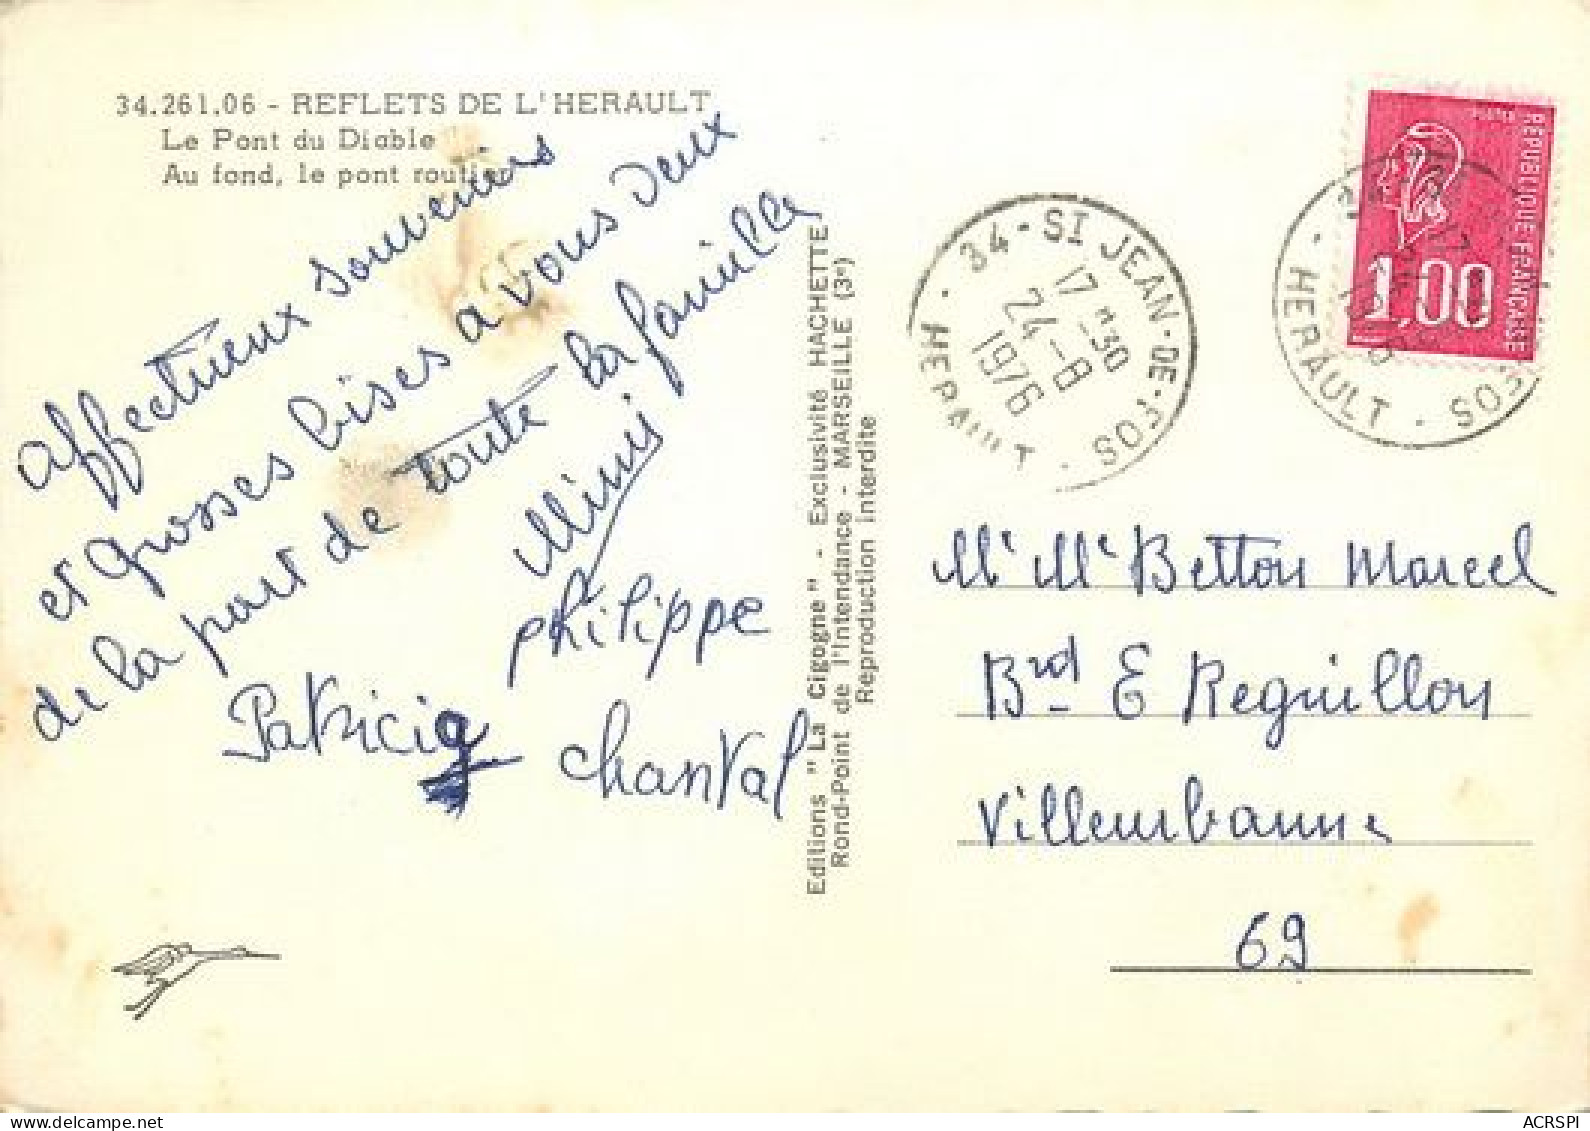 34.261.06 - REFLETS DE L'HERAULT
Le Pont du Diable
Au fond, le pont routier
affectueux souvenirs
et grosses bises a vous deux
de la part de toute la famille
Mimi
Philippe
Patricia
Chantal
Editions "La Cigogne" - Exclusivité HACHETTE
Rond-Point de l'Intendance - MARSEILLE (3e)
Reproduction interdite
34 - ST JEAN-DE-FOS
17 H 30
24 - 8
1976
HERAULT
REPUBLIQUE FRANÇAISE
POSTES
1,00
HERAULT
Mr Me Betton Marcel
Brd E Reguillon
Villeurbanne
69
ACRSPI